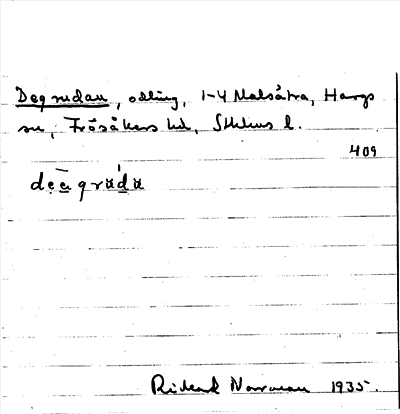 Degrudan, odling, 1-4 Malsätra, Hargs
sn, Frösåkers hd, Sthlms l.
409
Richard Norrman 1935.